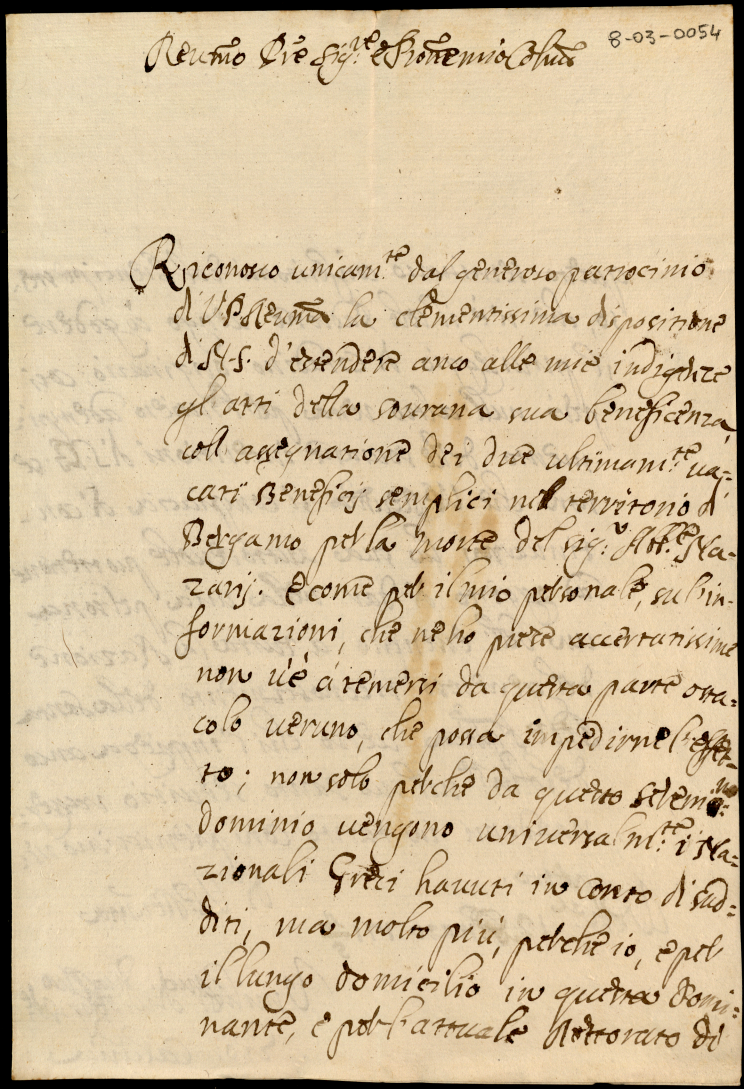 8-03-0054
Reumo Pre Sigre e Prone mio Colmo
Riconosco unicamte dal generoso patrocinio
di V. P. Reuma la clementissima dispositione
di N. S. d'estendere anco alle mie indigenze
gl'atti della sourana sua beneficenza
coll'assegnatione dei due ultimamte ua-
cati Beneficij semplici nel territorio di
Bergamo per la morte del sigr Abbe Na-
zarij. e come per il mio personale, sul'in-
formazioni, che ne hò prese accertatissime
non u'è à temersi da questa parte osta-
colo ueruno, che possa impedirne l'effet-
to; non solo perche da questo Serenmo
dominio uengono uniuersalmte i Na-
zionali Greci hauuti in conto di sud-
diti, ma molto più, perche io, e per
il lungo domicilio in questa Domi-
nante, e per l'attuale Rettorato di